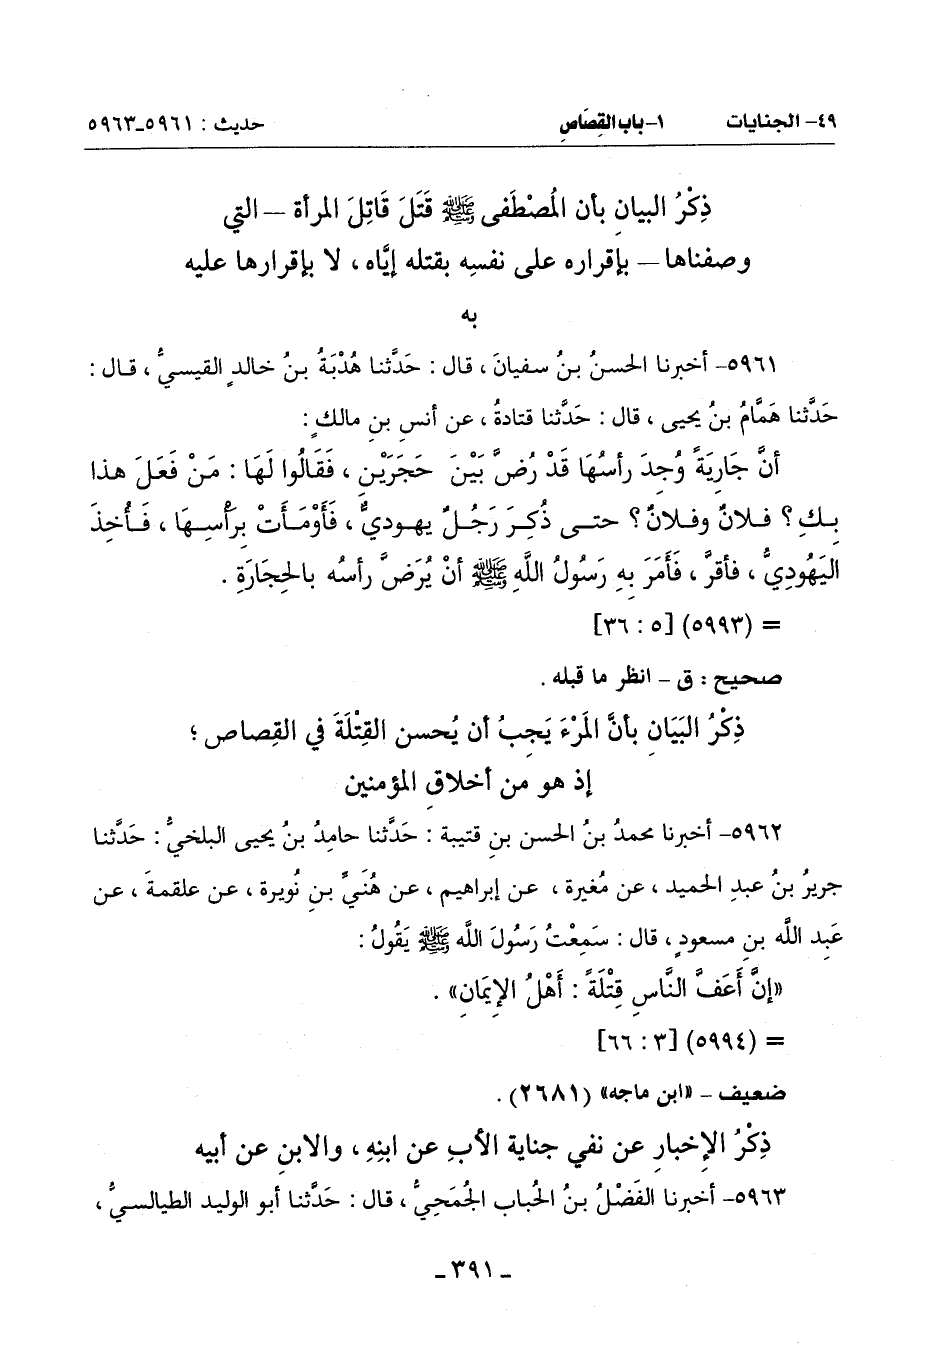 ٤٩- الجنايات ١-باب القِصَاصِ حديث : ٥٩٦١-٥٩٦٣
ذِكْرُ البيانِ بأن المُصْطَفى ﷺ قَتَلَ قَاتِلَ المرأة – التي
وصفناها – بإقراره على نفسِه بقتله إيَّاه ، لا بإقرارها عليه
به
٥٩٦١- أخبرنا الحسنُ بنُ سفيانَ ، قال : حَدَّثنا هُدْبَةُ بنُ خالدٍ القيسيُّ ، قـال :
حَدَّثنا هَمَّامُ بنُ يحيى ، قال : حَدَّثنا قتادةُ ، عن أنسِ بنِ مالكٍ :
أنَّ جَارِيَةً وُجِدَ رأسُهَا قَدْ رُضَّ بَيْنَ حَجَرَيْنِ ، فَقَالُوا لَهَا : مَنْ فَعَلَ هذا
بـكِ ؟ فـلانٌ وفـلانٌ ؟ حتـى ذُكِـرَ رَجُـلٌ يهـوديٌّ ، فَأَوْمَـأَتْ بِرَأْسِـهَا ، فَـأُخِذَ
اليَهُودِيُّ ، فأقرَّ ، فَأَمَرَ بِهِ رَسُولُ اللَّهِ ﷺ أنْ يُرَضَّ رأسُه بالحِجَارَةِ .
= (٥٩٩٣) [٥ : ٣٦]
صحيح : ق - انظر ما قبله .
ذِكْرُ البَيَانِ بأنَّ المَرْءَ يَجِبُ أن يُحسن القِتْلَةَ في القِصاص ؛
إذ هو من أخلاقِ المؤمنين
٥٩٦٢- أخبرنا محمدُ بنُ الحسن بنِ قتيبة : حَدَّثنا حامدُ بنُ يحيى البلخيُّ : حَدَّثنا
جريرُ بنُ عبدِ الحميد ، عن مُغيرة ، عن إبراهيم ، عن هُنَيِّ بنِ نُويرة ، عن علقمةَ ، عن
عَبد اللَّه بنِ مسعودٍ ، قال : سَمِعْتُ رَسُولَ اللَّه ﷺ يَقُولُ :
«إنَّ أَعَفَّ النَّاسِ قِتْلَةً : أَهْلُ الإِيمَانِ» .
= (٥٩٩٤) [٣ : ٦٦]
ضعيف - «ابن ماجه» (٢٦٨١) .
ذِكْرُ الإخبارِ عن نفي جناية الأبِ عن ابنِهِ ، والابنِ عن أبيه
٥٩٦٣- أخبرنا الفَضْلُ بنُ الحُباب الجُمَحِيُّ ، قال : حَدَّثنا أبو الوليد الطيالسيُّ ،
- ٣٩١ -